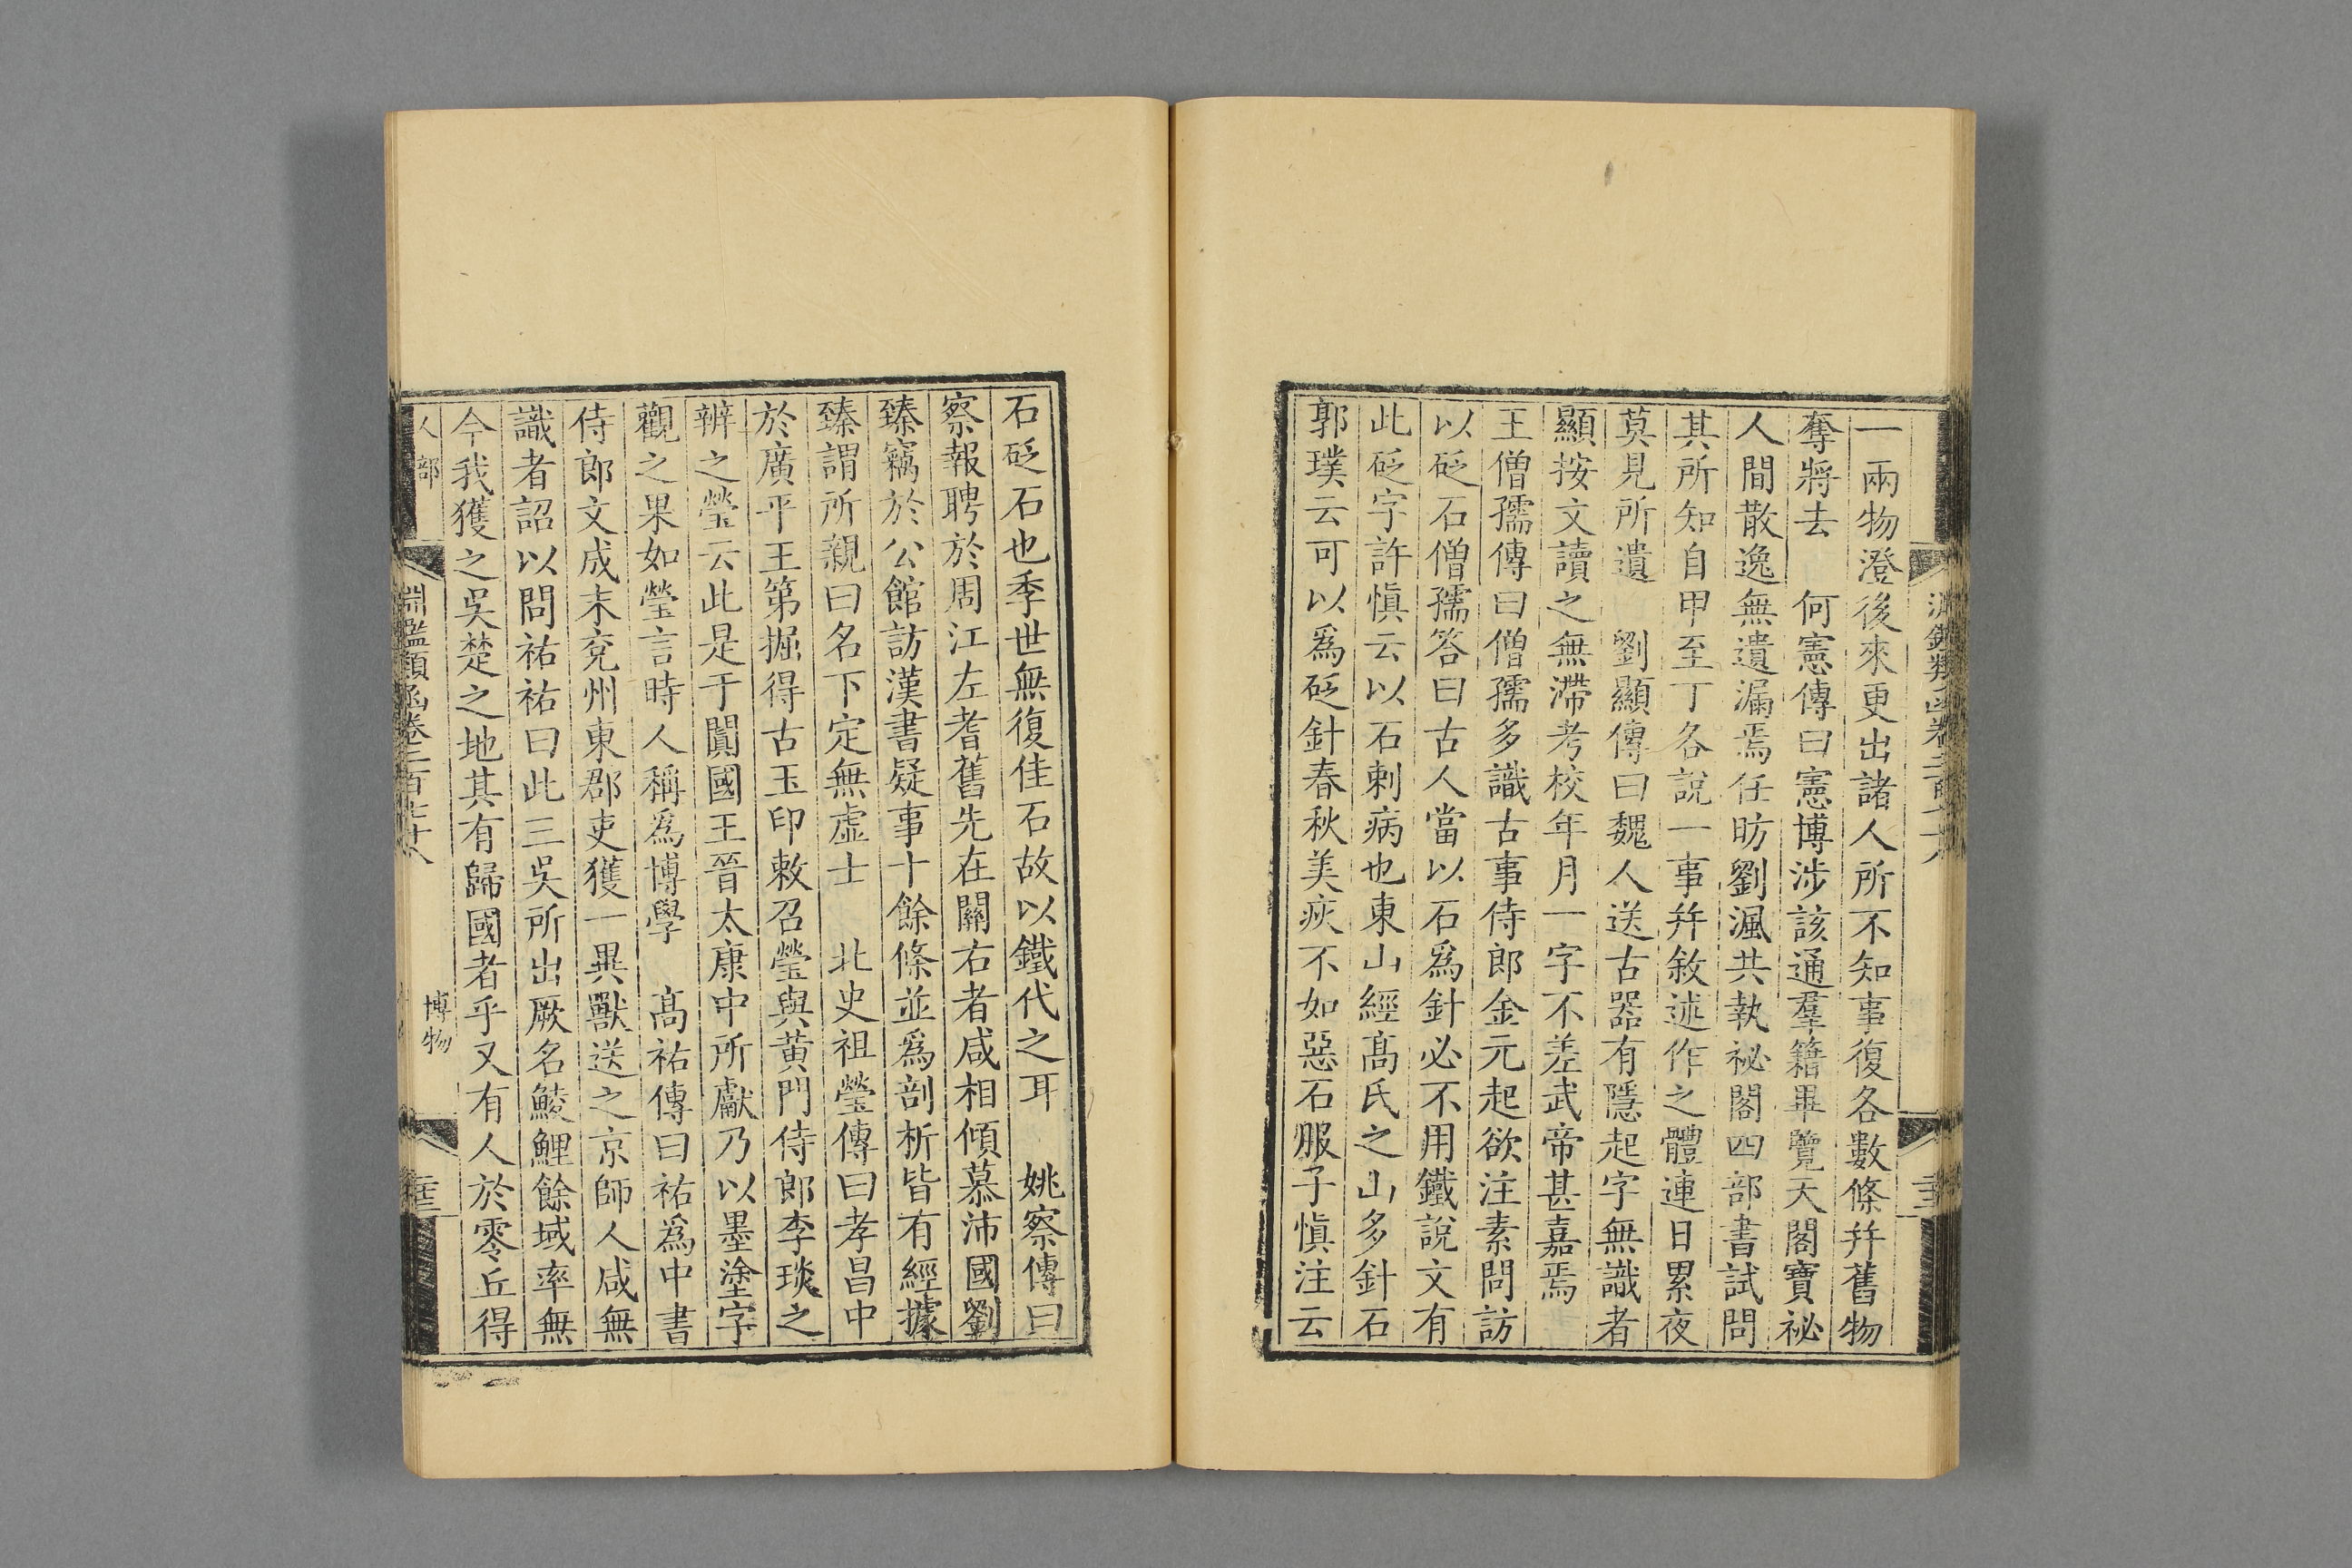 一兩物澄後來更出諸人所不知事復各數條幷舊物
奪將去　何憲傳曰憲博涉該通羣籍畢覽天閣寶祕
人間散逸無遺漏焉任昉劉渢共執祕閣四部書試問
其所知自甲至丁各說一事幷敘述作之體連日累夜
莫見所遺　劉顯傳曰魏人送古器有隱起字無識者
顯按文讀之無滯考校年月一字不差武帝甚嘉焉
王僧孺傳曰僧孺多識古事侍郎金元起欲注素問訪
以砭石僧孺答曰古人當以石爲針必不用鐵說文有
此砭字許愼云以石刺病也東山經高氏之山多針石
郭璞云可以爲砭針春秋美疢不如惡石服子愼注云
石砭石也季世無復佳石故以鐵代之耳　姚察傳曰
察報聘於周江左耆舊先在關右者咸相傾慕沛國劉
臻竊於公館訪漢書疑事十餘條並爲剖析皆有經據
臻謂所親曰名下定無虛士　北史祖瑩傳曰孝昌中
於廣平王第掘得古玉印敕召瑩與黃門侍郎李琰之
辨之瑩云此是于闐國王晉太康中所獻乃以墨塗字
觀之果如瑩言時人稱爲博學　高祐傳曰祐爲中書
侍郎文成末兗州東郡吏獲一異獸送之京師人咸無
識者詔以問祐祐曰此三吳所出厥名鯪鯉餘域率無
今我獲之吳楚之地其有歸國者乎又有人於零丘得
人部
淵鑑類函卷三百二十八
博物